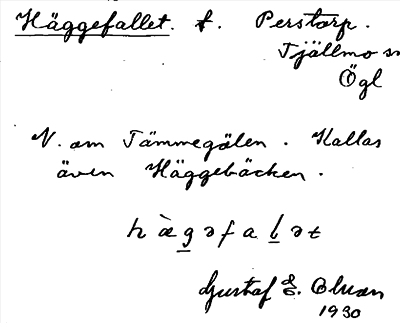 Häggefallet. f. Perstorp.
Tjällmo sn
Ögl
N. om Tämmegölen. Kallas
även Häggebäcken.
hàgəfalət
Gustaf E. Bluan
1930